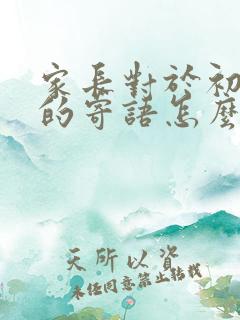 家長對於初
的寄語怎麼
天所以資
未经同意禁止转载